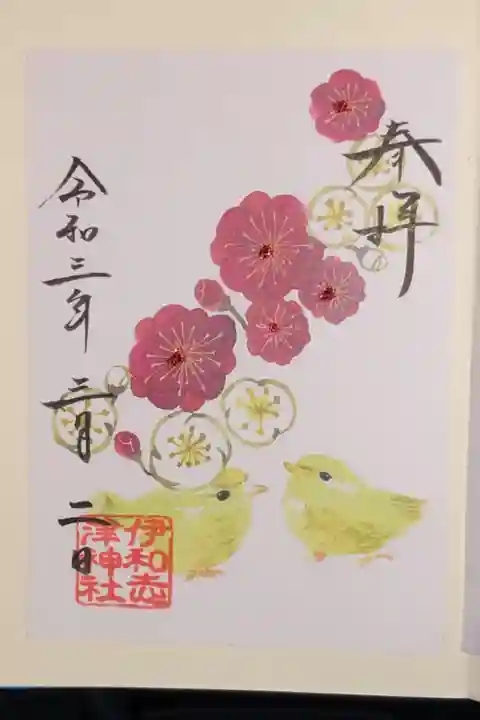 奉拝
令和三年 三月 二日
伊和志
津神社